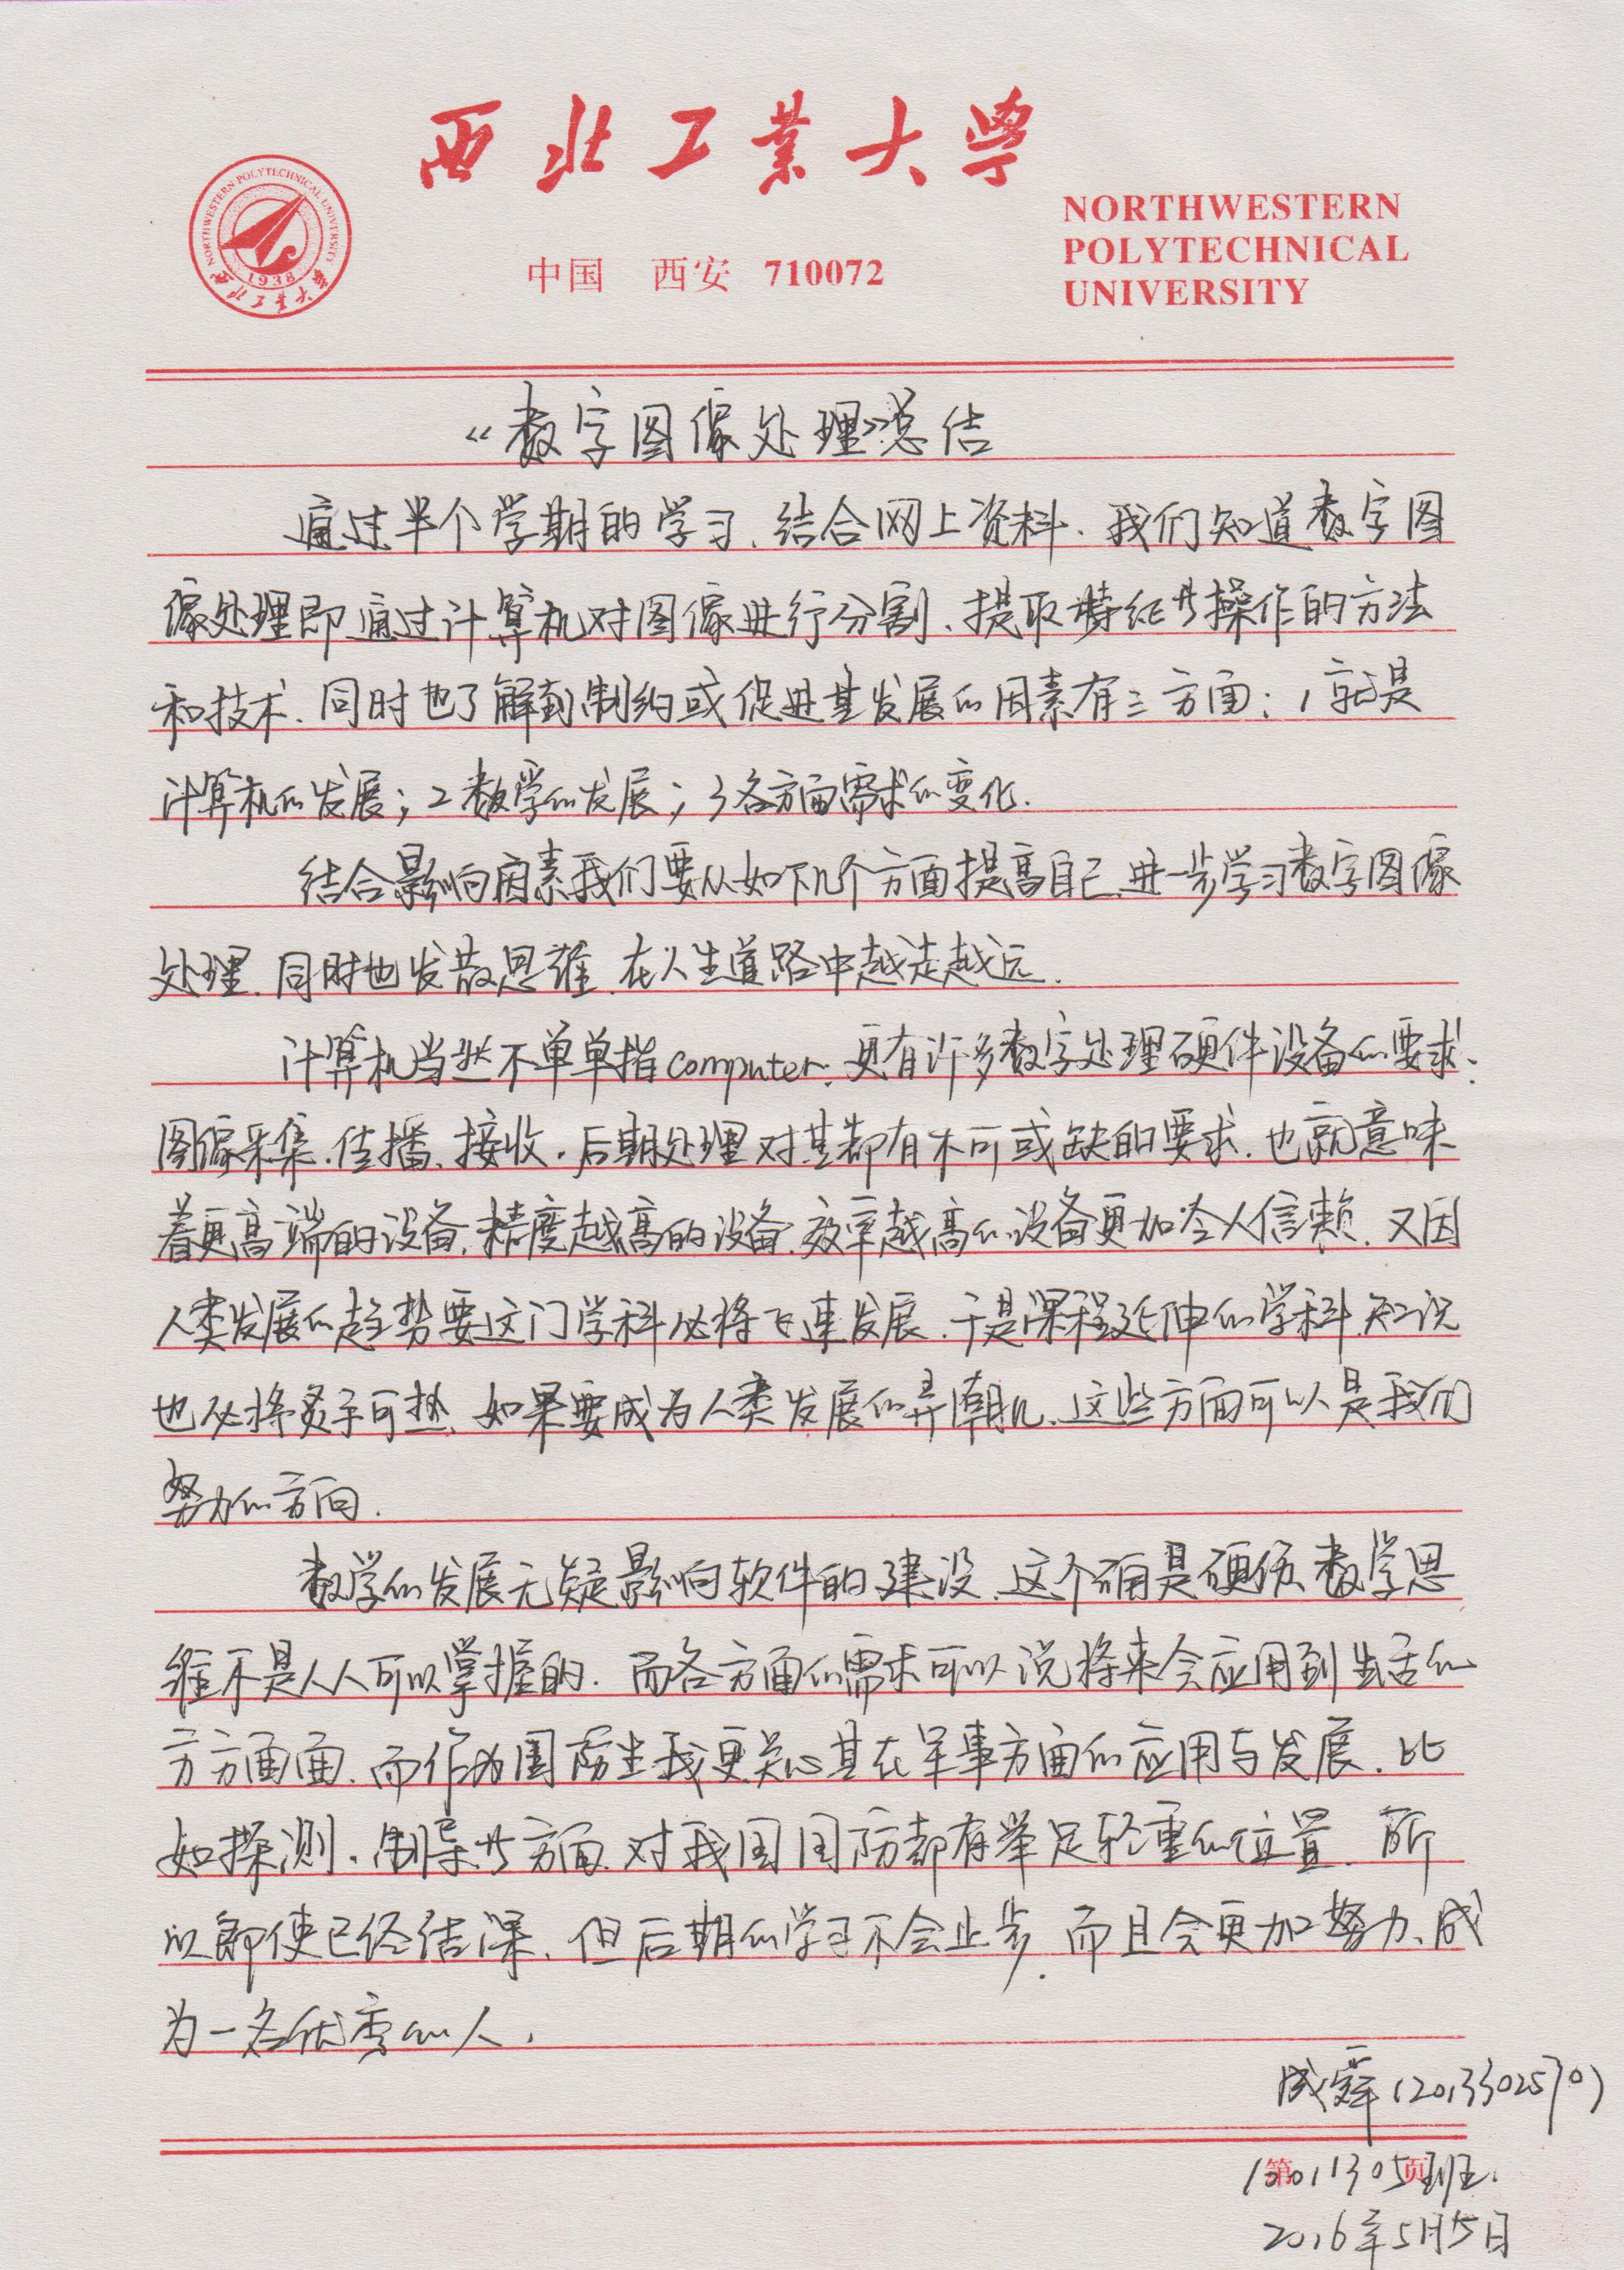 西北工业大学
NORTHWESTERN POLYTECHNICAL UNIVERSITY
1938
西北工业大学
中国 西安 710072
NORTHWESTERN
POLYTECHNICAL
UNIVERSITY
《数字图像处理》总结
通过半个学期的学习、结合网上资料、我们知道数字图
像处理即通过计算机对图像进行分割、提取特征等操作的方法
和技术、同时也了解到制约或促进其发展的因素有三方面:1就是
计算机的发展;2数学的发展;3各方面需求的变化.
结合影响因素我们要从如下几个方面提高自己、进一步学习数字图像
处理、同时也发散思维、在人生道路中越走越远.
计算机当然不单单指computer、更有许多数字处理硬件设备的要求:
图像采集、传播、接收、后期处理对其都有不可或缺的要求、也就意味
着更高端的设备、精度越高的设备、效率越高的设备更加令人信赖、又因
人类发展的趋势要这门学科必将飞速发展、于是课程延伸的学科知识
也必将炙手可热、如果要成为人类发展的弄潮儿、这些方面可以是我们
努力的方向.
数学的发展无疑影响软件的建设、这个确是硬伤、数学思
维不是人人可以掌握的. 而各方面的需求可以说将来会应用到生活的
方方面面、而作为国防生我更关心其在军事方面的应用与发展、比
如探测、制导等方面、对我国国防都有举足轻重的位置、所
以即使已经结课、但后期的学习不会止步、而且会更加努力、成
为一名优秀的人.
成舜(2013302570)
第 页
10011305班.
2016年5月15日